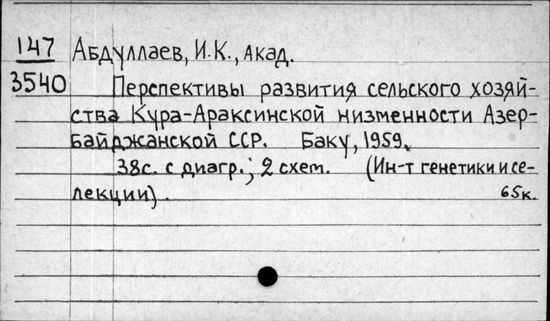 147 Абдуллаев, И.К., акад.
3540 Перспективы развития сельского хозяй-
ства Кура-Араксинской низменности Азер-
байджанской ССР. Баку, 1959.
38с. с диагр.; 2 схем. (Ин-т генетики и се-
лекции).
65к.